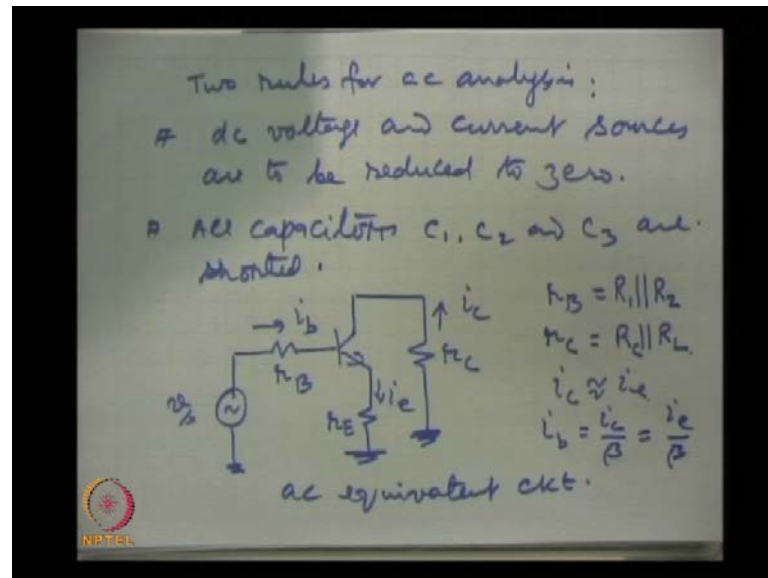 Two rules for ac analysis:
# dc voltage and current sources
are to be reduced to zero.
# All capacitors C₁, C₂ and C₃ are
shorted.
i_b
r_B
v_s
i_e
r_E
i_c
r_C
r_B = R₁||R₂
r_C = R_C||R_L
i_c ≈ i_e
i_b = i_c/β = i_e/β
ac equivalent ckt.
NPTEL